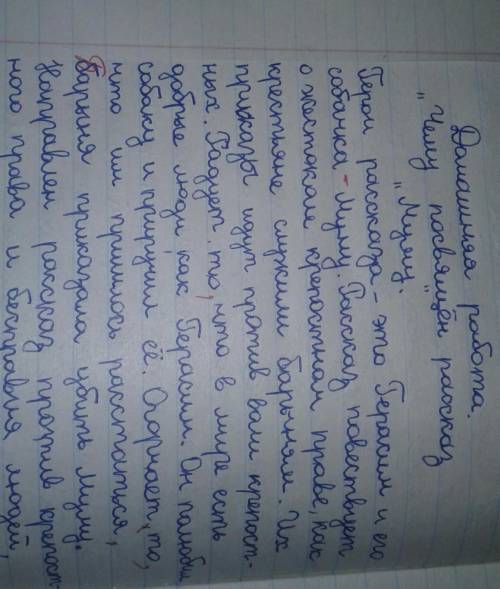 Домашняя работа.
"Чему посвящён рассказ
"Муму".
Герои рассказа - это Герасим и его
собачка - Муму. Рассказ повествует
о жестоком крепостном праве, как
крестьяне служили барыням. Их
приказы идут против воли крепост-
ных. Радует то, что в мире есть
добрые люди как Герасим. Он полюбил
собаку и приручил её. Огорчает то,
что им пришлось расстаться,
Барыня приказала убить Муму.
Направлен рассказ против крепост-
ного права и бесправия людей,